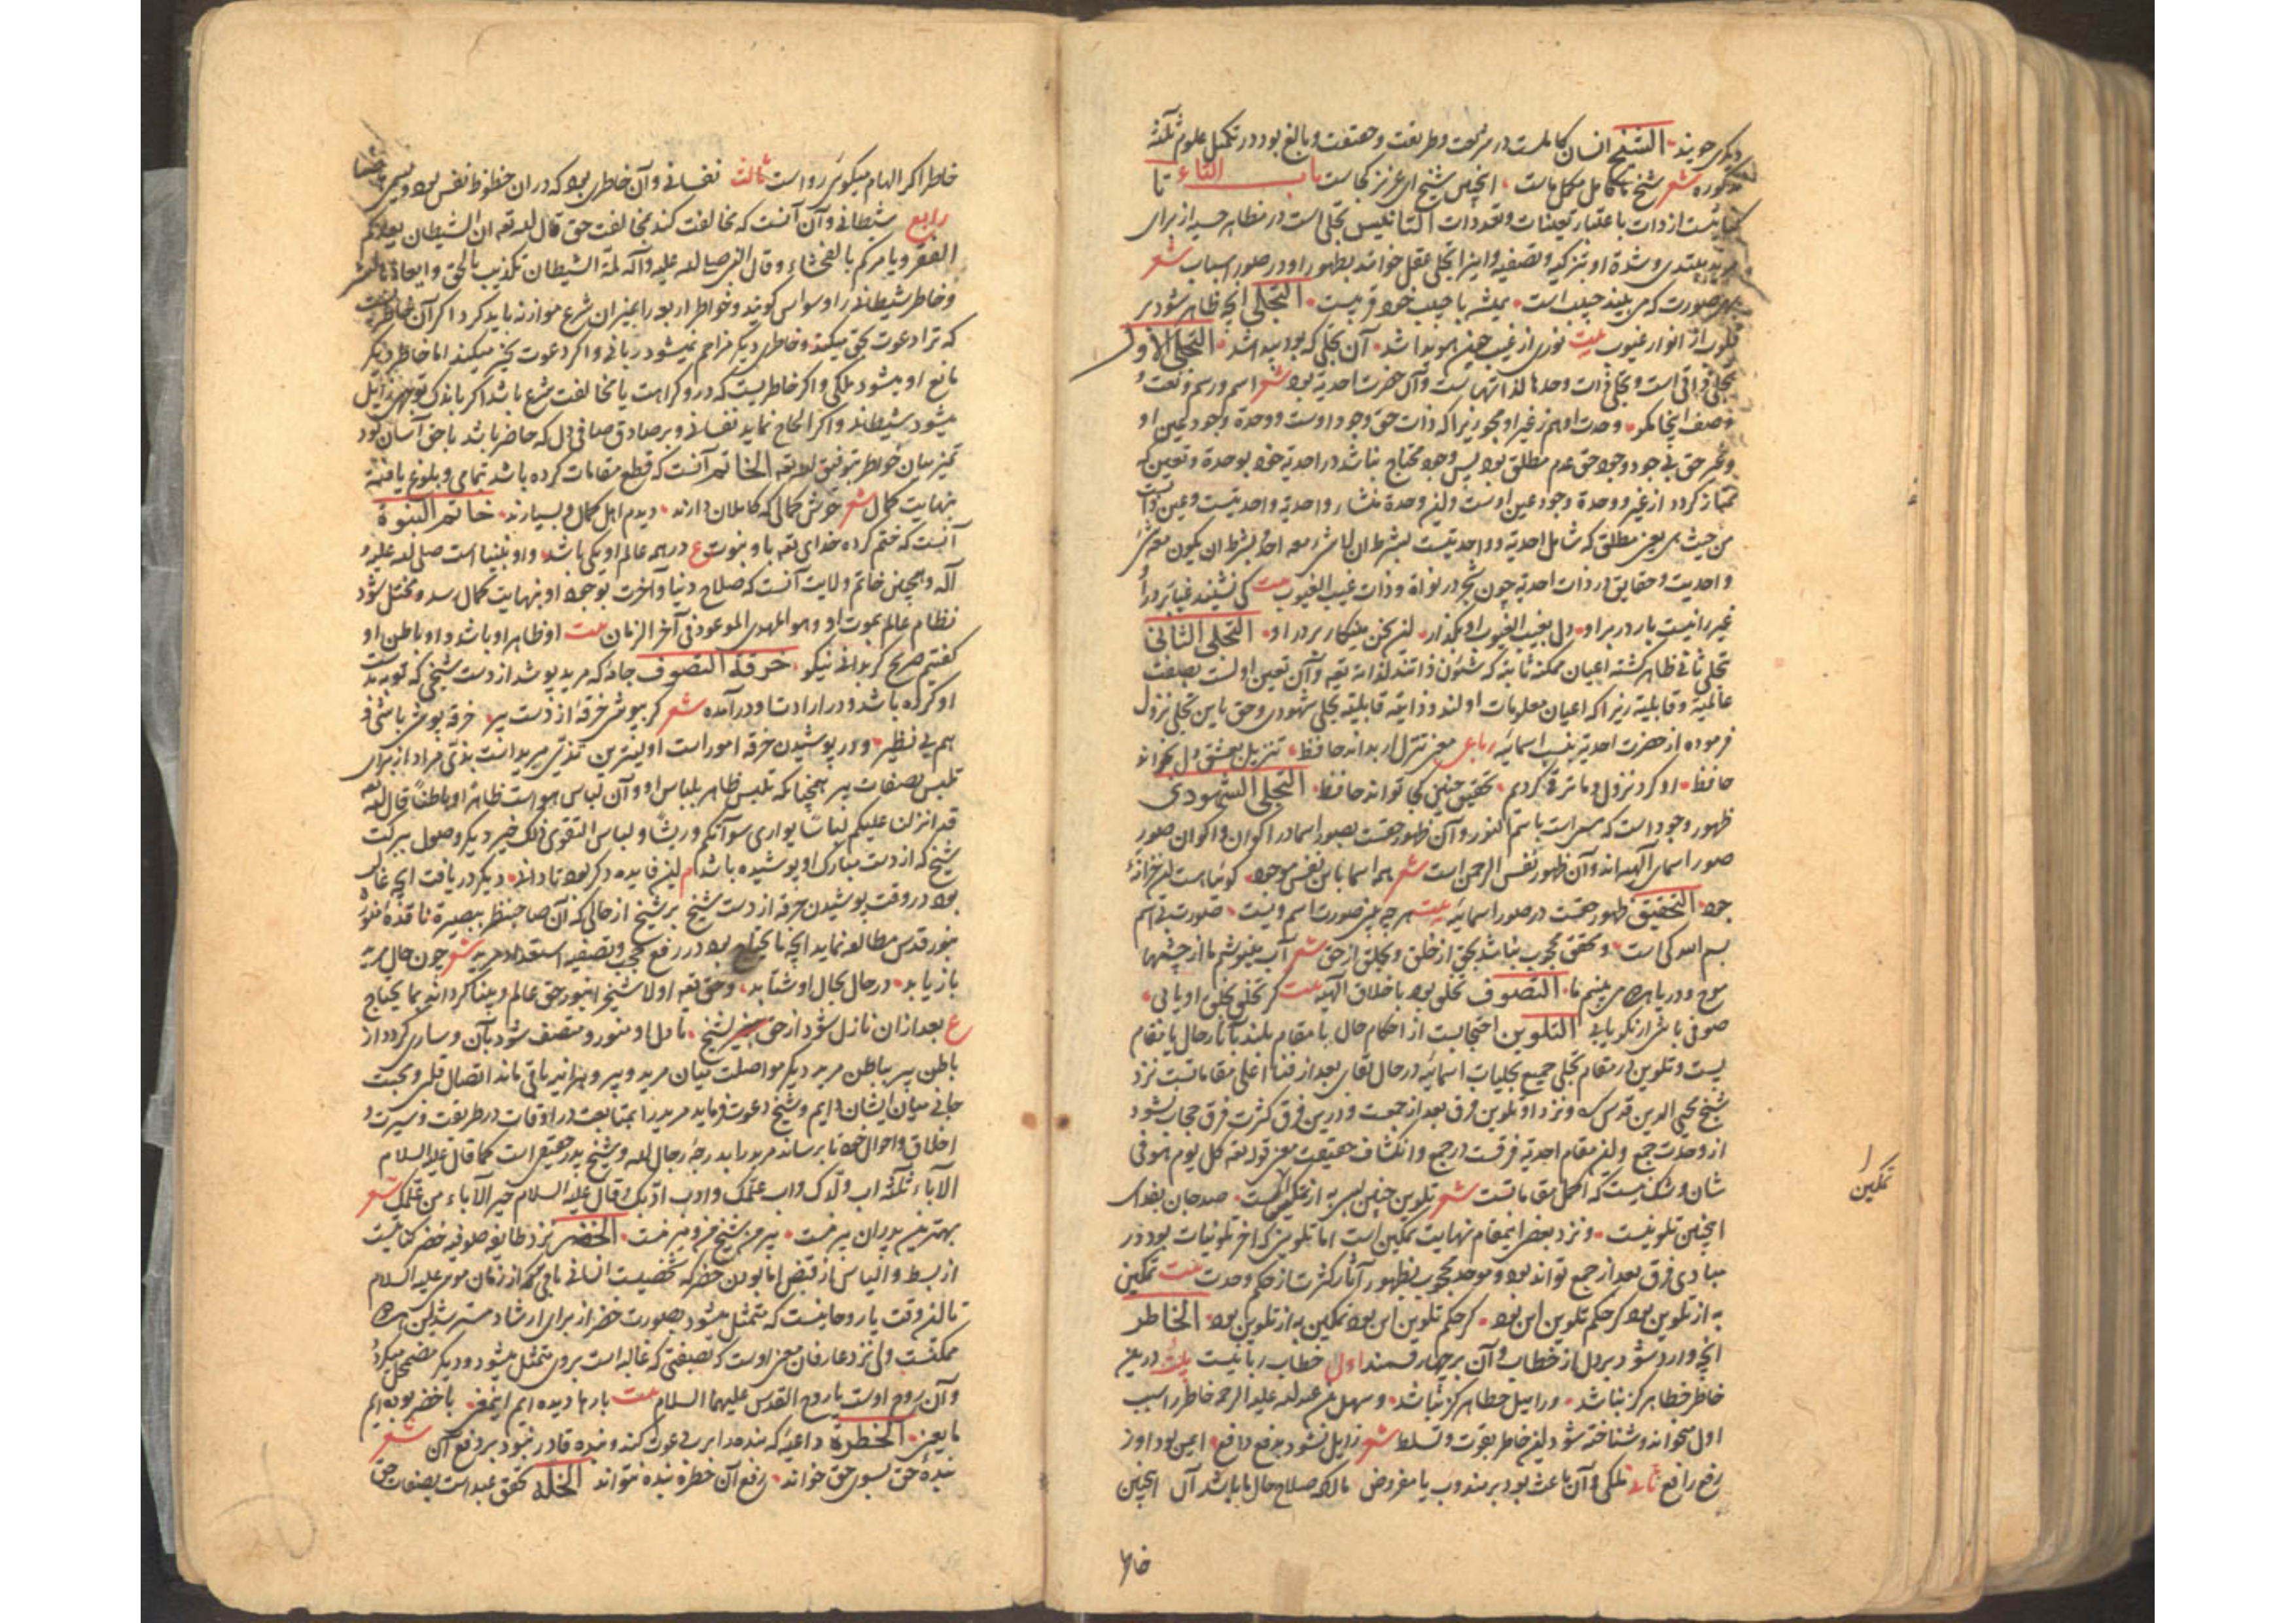 دیگری جویند الشیخ انسان کاملست در شریعت و طریقت و حقیقت و بالغ بود در تکمیل علوم ثلثه
مذکوره شعر شیخ ما کامل مکمل ماست اینچنین شیخ ای عزیز کجاست باب التاء تا
کنایتست از ذات باعتبار تعینات و تعددات التانیس تجلی است در مظاهر حسیه از برای
مرید مبتدی و شده او تزکیه و تصفیه و این را تجلی فعلی خوانند بظهور او در صور اسباب شعر
بهر صورت که می بیند حبیب است همیشه با حبیب خود قریبست التجلی انچه ظاهر شود بر
قلوب از انوار غیوب بیت نوری از غیب چنین هویدا شد آن تجلی که بود پیدا شد التجلی الاول
تجلی ذاتی است و تجلی ذات وحدها لذاتهاست و آن حضرت احدیه بود شعر اسم و رسم و نعت و
وصف اینجا مگو وحدت او هم ز غیر او مجو زیرا که ذات حق وجود اوست و وحدة وجود عین او
و غیر حق بی جود وجود حق عدم مطلق بود پس وجود محتاج نباشد در احدیه خود بوحدة و تعین که
ممتاز گردد از غیر و وحدة وجود عین اوست و این وحدة منشاء احدیه و واحدیتست و عین ذاتست
من حیث هی یعنی مطلق که شامل احدیه و واحدیتست بشرط ان لا شیء معه احد و بشرط ان یکون معه شیء
واحدیت و حقایق در ذات احدیه چون شجر در نواة و ذات غیب الغیوب بیت کی نشیند غیر بر در او
غیر را نیست بار در بر او دل بغیب الغیوب او بگذار این سخن می نگار بر در او التجلی الثانی
تجلی ثانی ظاهر گشته اعیان ممکنه ثابته که شئون ذاتند لذاته تعه و آن تعین اولست بصفت
عالمیة و قابلیة زیرا که اعیان معلومات اولند و ذاتیه قابلیه تجلی شهودی و حق باین تجلی نزول
فرموده از حضرت احدیه بنسب اسمائیه رباعی معنی تنزل ار بداند حافظ تنزیل بعشق دل بخواند
حافظ او کرد نزول و ما ترقی کردیم تحقیق چنین کجا تواند حافظ التجلی الشهودی
ظهور وجود است که مسمی است باسم النور و آن ظهور حقست بصور اسما در اکوان و اکوان صور
صور اسمای آلهیه اند و آن ظهور نفس الرحمن است شعر همه اسما باین نفس موجود گوئیا هست این خزانه
جود التحقیق ظهور حقست در صور اسمائیه بیت هر چه بینی صورت اسم ویست صورت بی اسم
بسم الله کی است و محقق محجوب نباشد بحق از خلق و بخلق از حق شعر آب مینوشیم ما از چشمها
موج و دریا هر دو می بینیم ما التصوف تخلق بود باخلاق آلهیه بیت گر تخلق بخلق او یابی
صوفی باش ار نکو یابی التلوین احتجابست از احکام حال یا مقام بلند بآثار حال یا مقام
پست و تلوین در مقام تجلی جمیع تجلیات اسمائیه در حال بقای بعد از فنا و اعلی مقاماتست نزد
شیخ محیی الدین قدس سره و نزد او تلوین فرق بعد از جمعت و درین فرق کثرت فرق حجاب نشود
از وحدت جمع و این مقام احدیه فرقت در جمع و انکشاف حقیقت معنی قوله تعه کل یوم هو فی
شان و شک نیست که اکمل مقاماتست شعر تلوین چنین بسی به از تمکینست صد جان بفدای
اینچنین تلوینست و نزد بعضی این مقام نهایت تمکین است اما تلوینی که آخر تلوینات بود در
مبادی فرق بعد از جمع تواند بود و موحد محجوب بظهور آثار کثرت از حکم وحدت بیت تمکین
به از تلوین بود گر حکم تلوین این بود گر حکم تلوین این بود تمکین به از تلوین بود الخاطر
انچه وارد شود بر دل از خطاب و آن بر چهار قسمند اول خطاب ربانیست بیت در این
خاطر خطا هرگز نباشد ورا میل خطا هرگز نباشد و سهل بن عبد الله علیه الرحمه خاطر را سبب
اول میخواند و شناخته شود این خاطر بقوت و تسلط شعر زایل نشود بدفع دافع ایمن بود او ز
رفع رافع ثانی ملکی و آن باعث بود بر مندوب یا مفروض مالکه صلاح حال ما باشد آن اینچنین
خاط
تمکین
خاطر اگر الهام میگویند رواست ثالث نفسانی و آن خاطری بود که در آن حظوظ نفس بود و یسمی هاجسا
رابع شیطانی و آن آنست که مخالفت کند بمخالفت حق قال الله تعه ان الشیطان یعدکم
الفقر و یامرکم بالفحشاء و قال النبی صلی الله علیه و آله لمة الشیطان تکذیب بالحق و ایعاد بالشر
و خاطر شیطانی را وسواس گویند و خواطر اربعه را بمیزان شرع موازنه باید کرد اگر آن خاطریست
که ترا دعوت بحق میکند و خاطری دیگر مزاحم نمیشود ربانی و اگر دعوت بخیر میکند اما خاطر دیگر
مانع او میشود ملکی و اگر خاطریست که درو کراهت یا مخالفت شرع باشد اگر باندک توجهی زایل
میشود شیطانی و اگر الحاح نماید نفسانی و بر صادق صافی دل که حاضر باشد با حق آسان بود
تمیز میان خواطر بتوفیق الله تعه الخاتم آنست که قطع مقامات کرده باشد بتمامی و بلوغ یافته
بنهایت کمال شعر خوش کمالی که کاملان دارند دیدم اهل کمال و بسیارند خاتم النبوة
آنست که ختم کرده خدای تعه باو نبوت ع در همه عالم او یکی باشد و او نبینا است صلی الله علیه و
آله و همچنین خاتم ولایت آنست که صلاح دنیا و آخرت بوجود او بنهایت کمال رسد و مختل شود
نظام عالم بموت او و هو المهدی الموعود فی آخر الزمان بیت او ظاهر او باشد و او باطن او
گفتیم صریح گر بدانی نیکو خرقة التصوف جامه که مرید پوشد از دست شیخی که توبه بدست
او کرده باشد و در ارادت او در آمده شعر گر بپوشی خرقه از دست پیر خرقه پوشی باشی و
هم بی نظیر و در پوشیدن خرقه امور است اولیترین تزیی مرید است بزی مراد از برای
تلبس بصفات پیر همچنانکه تلبس ظاهر بلباس او و آن لباس هو است ظاهرا و باطنا قال الله تعه
قد انزلنا علیکم لباسا یواری سوآتکم و ریشا و لباس التقوی ذلک خیر دیگر وصول ببرکت
شیخ که از دست مبارک او پوشیده باشد م این فایده دگر بود تا دانی دیگر دریافت انچه غالب
بود در وقت پوشیدن خرقه از دست شیخ بر شیخ از حالی که آن صاحب نظر ببصیرة نافذه
بنور قدس مطالعه نماید انچه ما یحتاج بود در رفع حجب و تصفیه استعداد مرید شعر چون حال مرید
باز یابد در حال بحال او شتابد و حق تعه اولا شیخ را بنور حق عالم و بینا گرداند بما یحتاج
ع بعد از آن نازل شود از حق بشیخ تا دل او منور و متصف شود بآن و ساری گردد از
باطن پیر بباطن مرید دیگر مواصلت میان مرید و پیر و بدان باقی ماند اتصال قلبی و محبت
جانی میان ایشان دایم و شیخ دعوت فرماید مرید را بمتابعت در اوقات در طریقت و سیرت و
اخلاق و احوال خود تا برساند مرید را بدرجه رجال الله و شیخ پدر حقیقی است کما قال علیه السلام
الآباء ثلثة اب ولدک و اب علمک و اب ادبک و قال علیه السلام خیر الآباء من علمک شعر
بهترین پدران پیر منست پیر من شیخ من و میر منست الخضر نزد طایفه صوفیه خضر کنایتست
از بسط و الیاس از قبض اما بودن خضر که شخصیت انسانی باقی بود از زمان موسی علیه السلام
تا این وقت یا روحانیست که متمثل میشود بصورت خضر از برای ارشاد مسترشد این هر دو
ممکنست ولی نزد عارفان معنی اوست که بصفتی که غالب است بروی متمثل میشود و دیگر مضمحل میگردد
و آن روح اوست یا روح القدس علیهما السلام بیت بارها دیده ایم این معنی با خضر بوده ایم
ما یعنی الخطرة داعیه که بنده را بر بی دعوت کند و بنده قادر نبود بر دفع آن شعر
بنده حق بسوی حق خواند رفع آن خطره بنده نتواند الخله تحقق عبد است بصفات حق